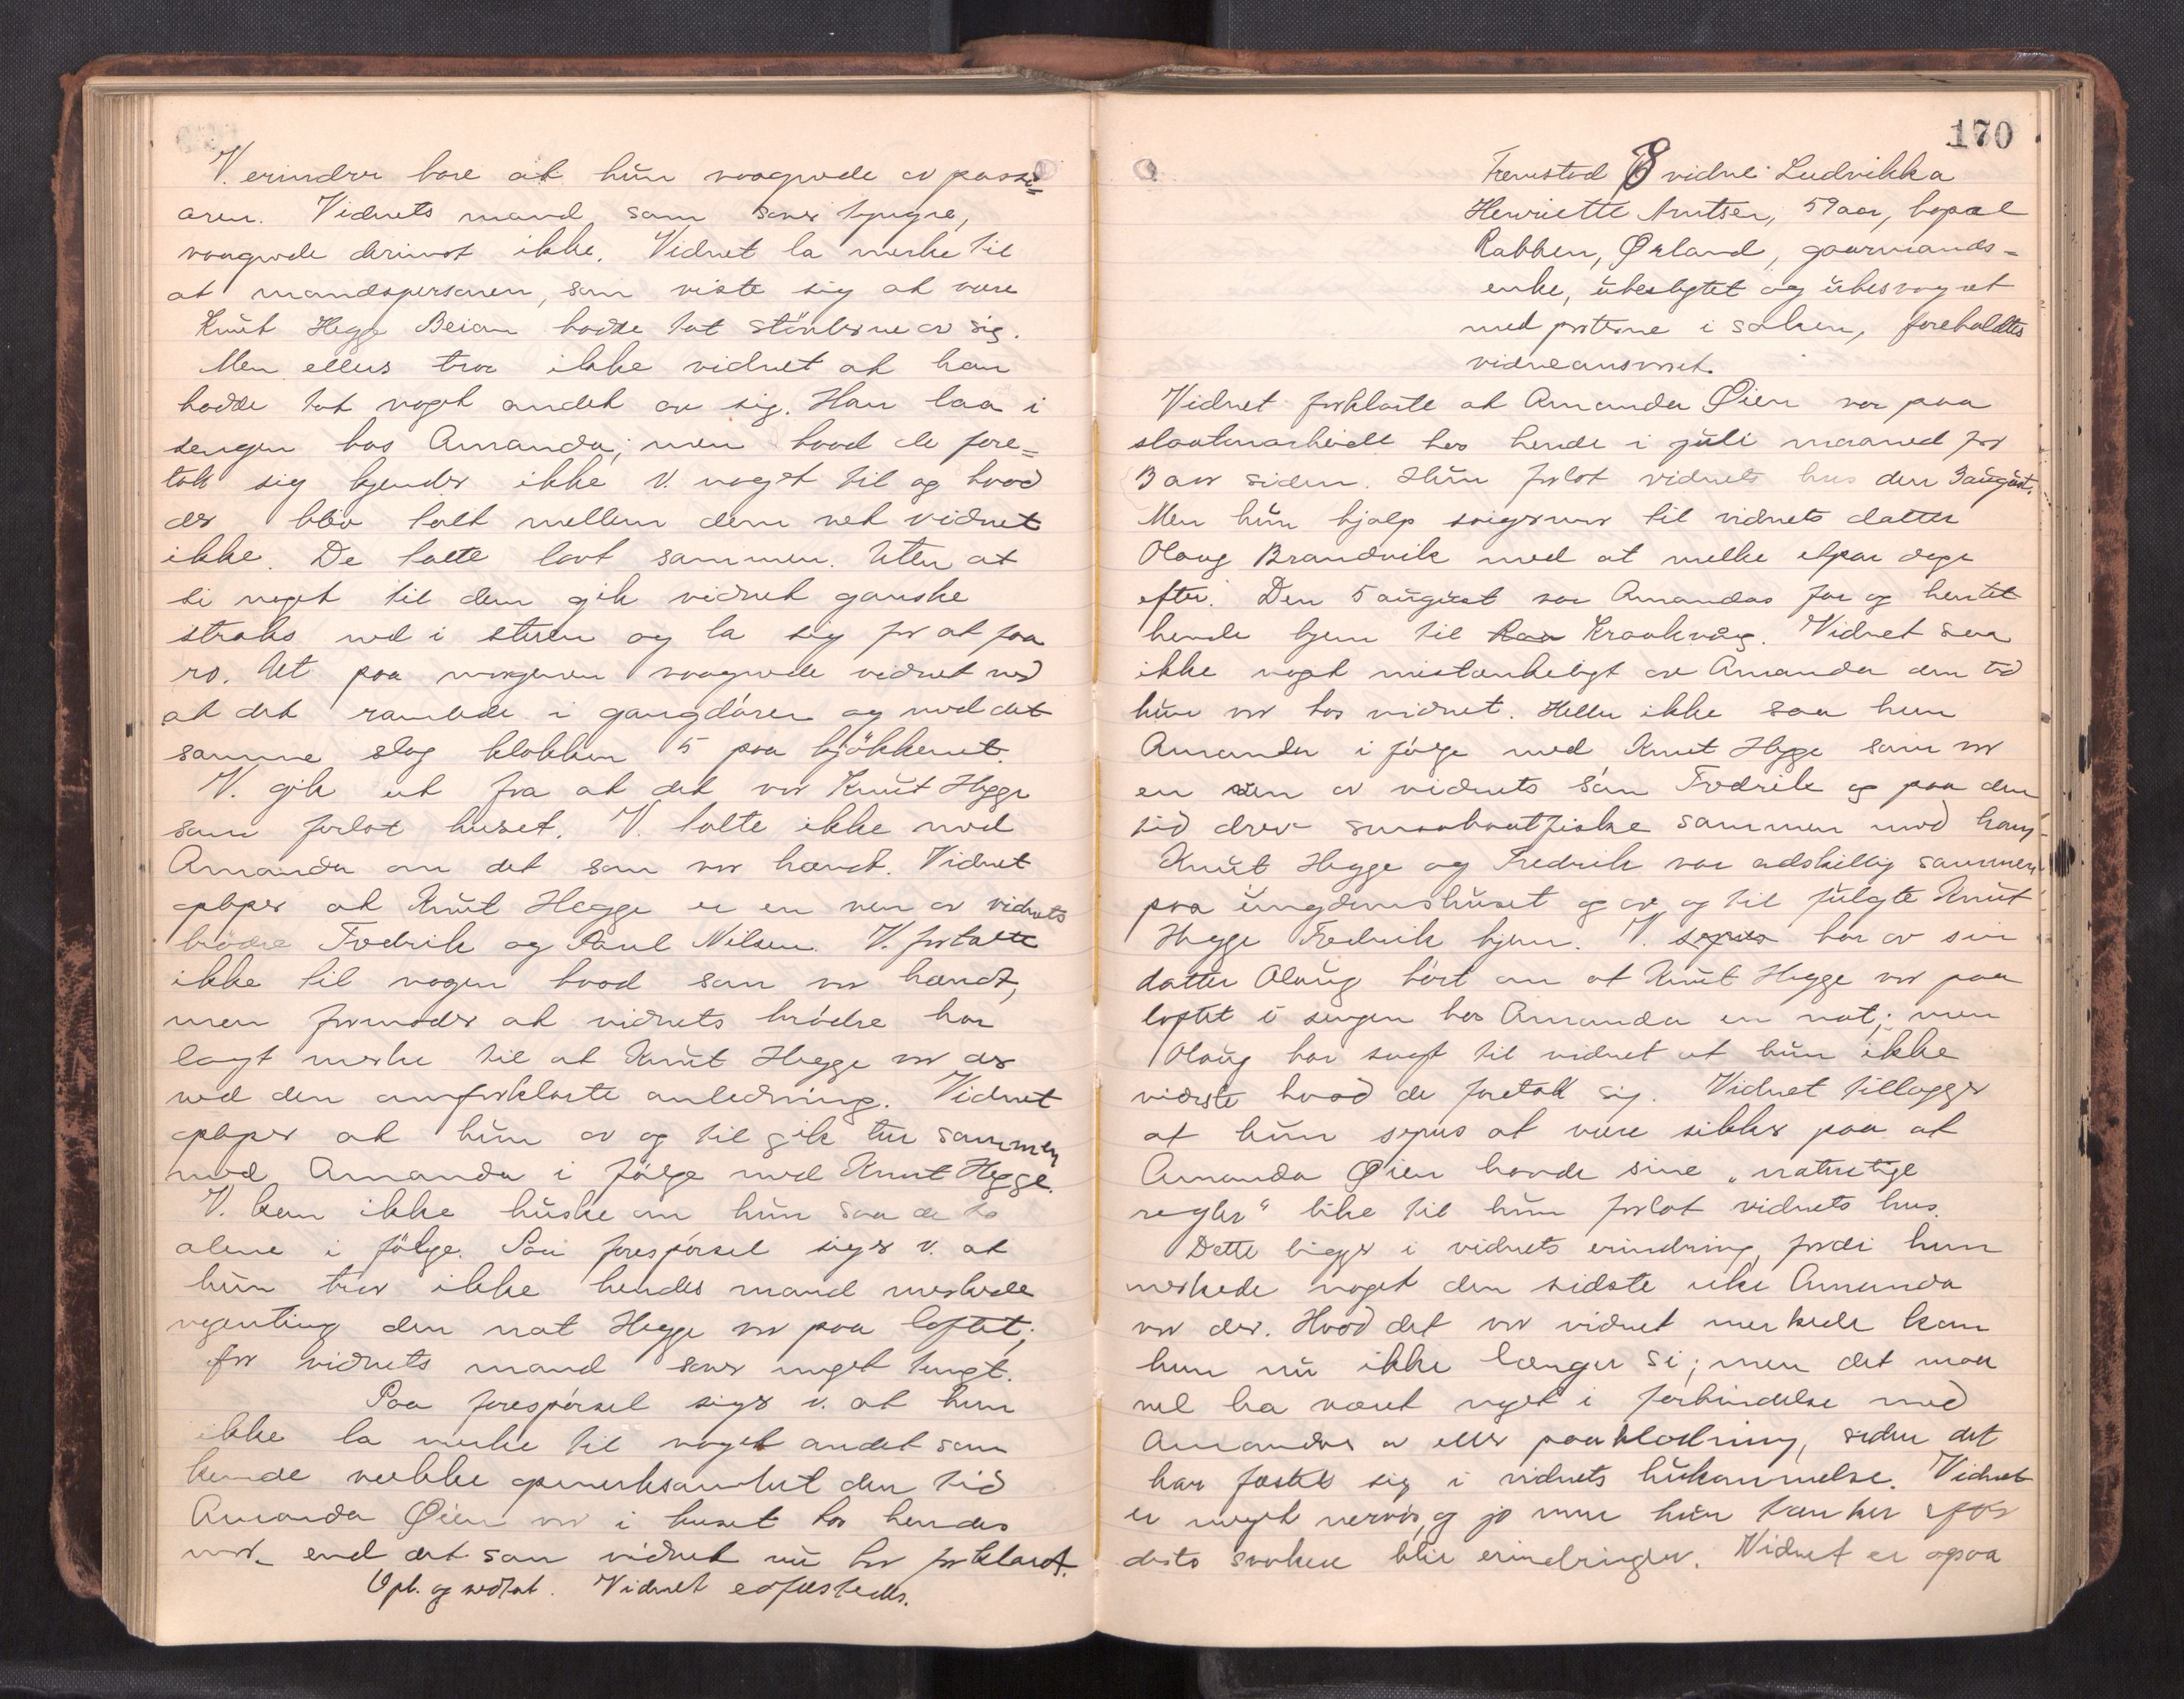 V. erindrer bare at hun vaagnede av passi=
aren. Vidnets mand, som sover tyngre,
vaagnede derimot ikke. Vidnet la merke til
at mandspersonen, som viste sig at være
Knut Hegge Beian hadde tat støvlerne av sig.
Men ellers tror ikke vidnet at han
hadde tat noget andet av sig. Han laa i
sengen hos Amanda; men hvad de fore=
tok sig kjender ikke V. noget til og hvad
der blev talt mellem dem vet vidnet
ikke. De talte lavt sammen. Uten at
si noget til dem gik vidnet ganske
straks ned i stuen og la sig for at faa
ro. Ut paa morgenen vaagnede vidnet ved
at det ramlede i gangdøren og med det
samme slog klokken 5 paa kjøkkenet.
V. gik ut fra at det var Knut Hegge
som forlot huset. V. talte ikke med
Amanda om det som var hændt. Vidnet
opløper at Knut Hegge er en ven av vidnets
brødre Fredrik og Paul Nilsen. V. fortalte
ikke til nogen hvad som var hændt,
men formoder at vidnets brødre har
lagt merke til at Knut Hegge var der
ved den omforklarte anledning. Vidnet
oplyser at hun av og til gik tur sammen
med Amanda i følge med Knut Hegge.
V. kan ikke huske om hun saa de to
alene i følge. Paa forespørsel siger v. at
hun tror ikke hendes mand merkede
nogenting den nat Hegge var paa loftet;
for vidnets mand sover meget tungt.
Paa forespørsel siger v. at hun
ikke la merke til noget andet som
kunde vække opmerksomhet den tid
Amanda Øien var i huset hos hendes
mor end det som vidnet nu har forklart.
Opl. og vedtat. Vidnet edfæstedes.
170
Fremstod 8 vidne Ludvikka
Henriette Knutsen, 59 aar, bopæl
Rabben, Ørland, gaarmands=
enke, ubeslegtet og ubesvogret
med parterne i saken, foreholdtes
vidneansvaret.
Vidnet forklarte at Amanda Øien var paa
slaatonarbeide hos hende i juli maaned for
3 aar siden. Hun forlot vidnets hus den 3 august.
Men hun hjalp svigermor til vidnets datter
Olaug Brandvik med at melke etpar dage
efter. Den 5 august var Amandas far og hentet
hende hjem til Kraakvaag. Vidnet saa
ikke noget mistænkeligt av Amanda den tid
hun var hos vidnet. Heller ikke saa hun
Amanda i følge med Knut Hegge som var
en ven av vidnets søn Fredrik og paa den
tid drev smaabaatfiske sammen med ham.
Knut Hegge og Fredrik var adskillig sammen
paa ungdomshuset og av og til fulgte Knut
Hegge Fredrik hjem. V. har av sin
datter Olaug hørt om at Knut Hegge var paa
loftet i sengen hos Amanda en nat; men
Olaug har sagt til vidnet at hun ikke
visste hvad de foretok sig. Vidnet tillægger
at hun synes at være sikker paa at
Amanda Øien havde sine "naturlige
regler" like til hun forlot vidnets hus.
Dette ligger i vidnets erindring, fordi hun
merkede noget den sidste uke Amanda
var der. Hvad det var vidnet merkede kan
hun nu ikke længer si; men det maa
vel ha været noget i forbindelse med
Amandas av eller paaklædning, siden det
har fæstet sig i vidnets hukommelse. Vidnet
er meget nervøs, og jo mer hun tænker efter
desto svakere blir erindringen. Vidnet er ogsaa